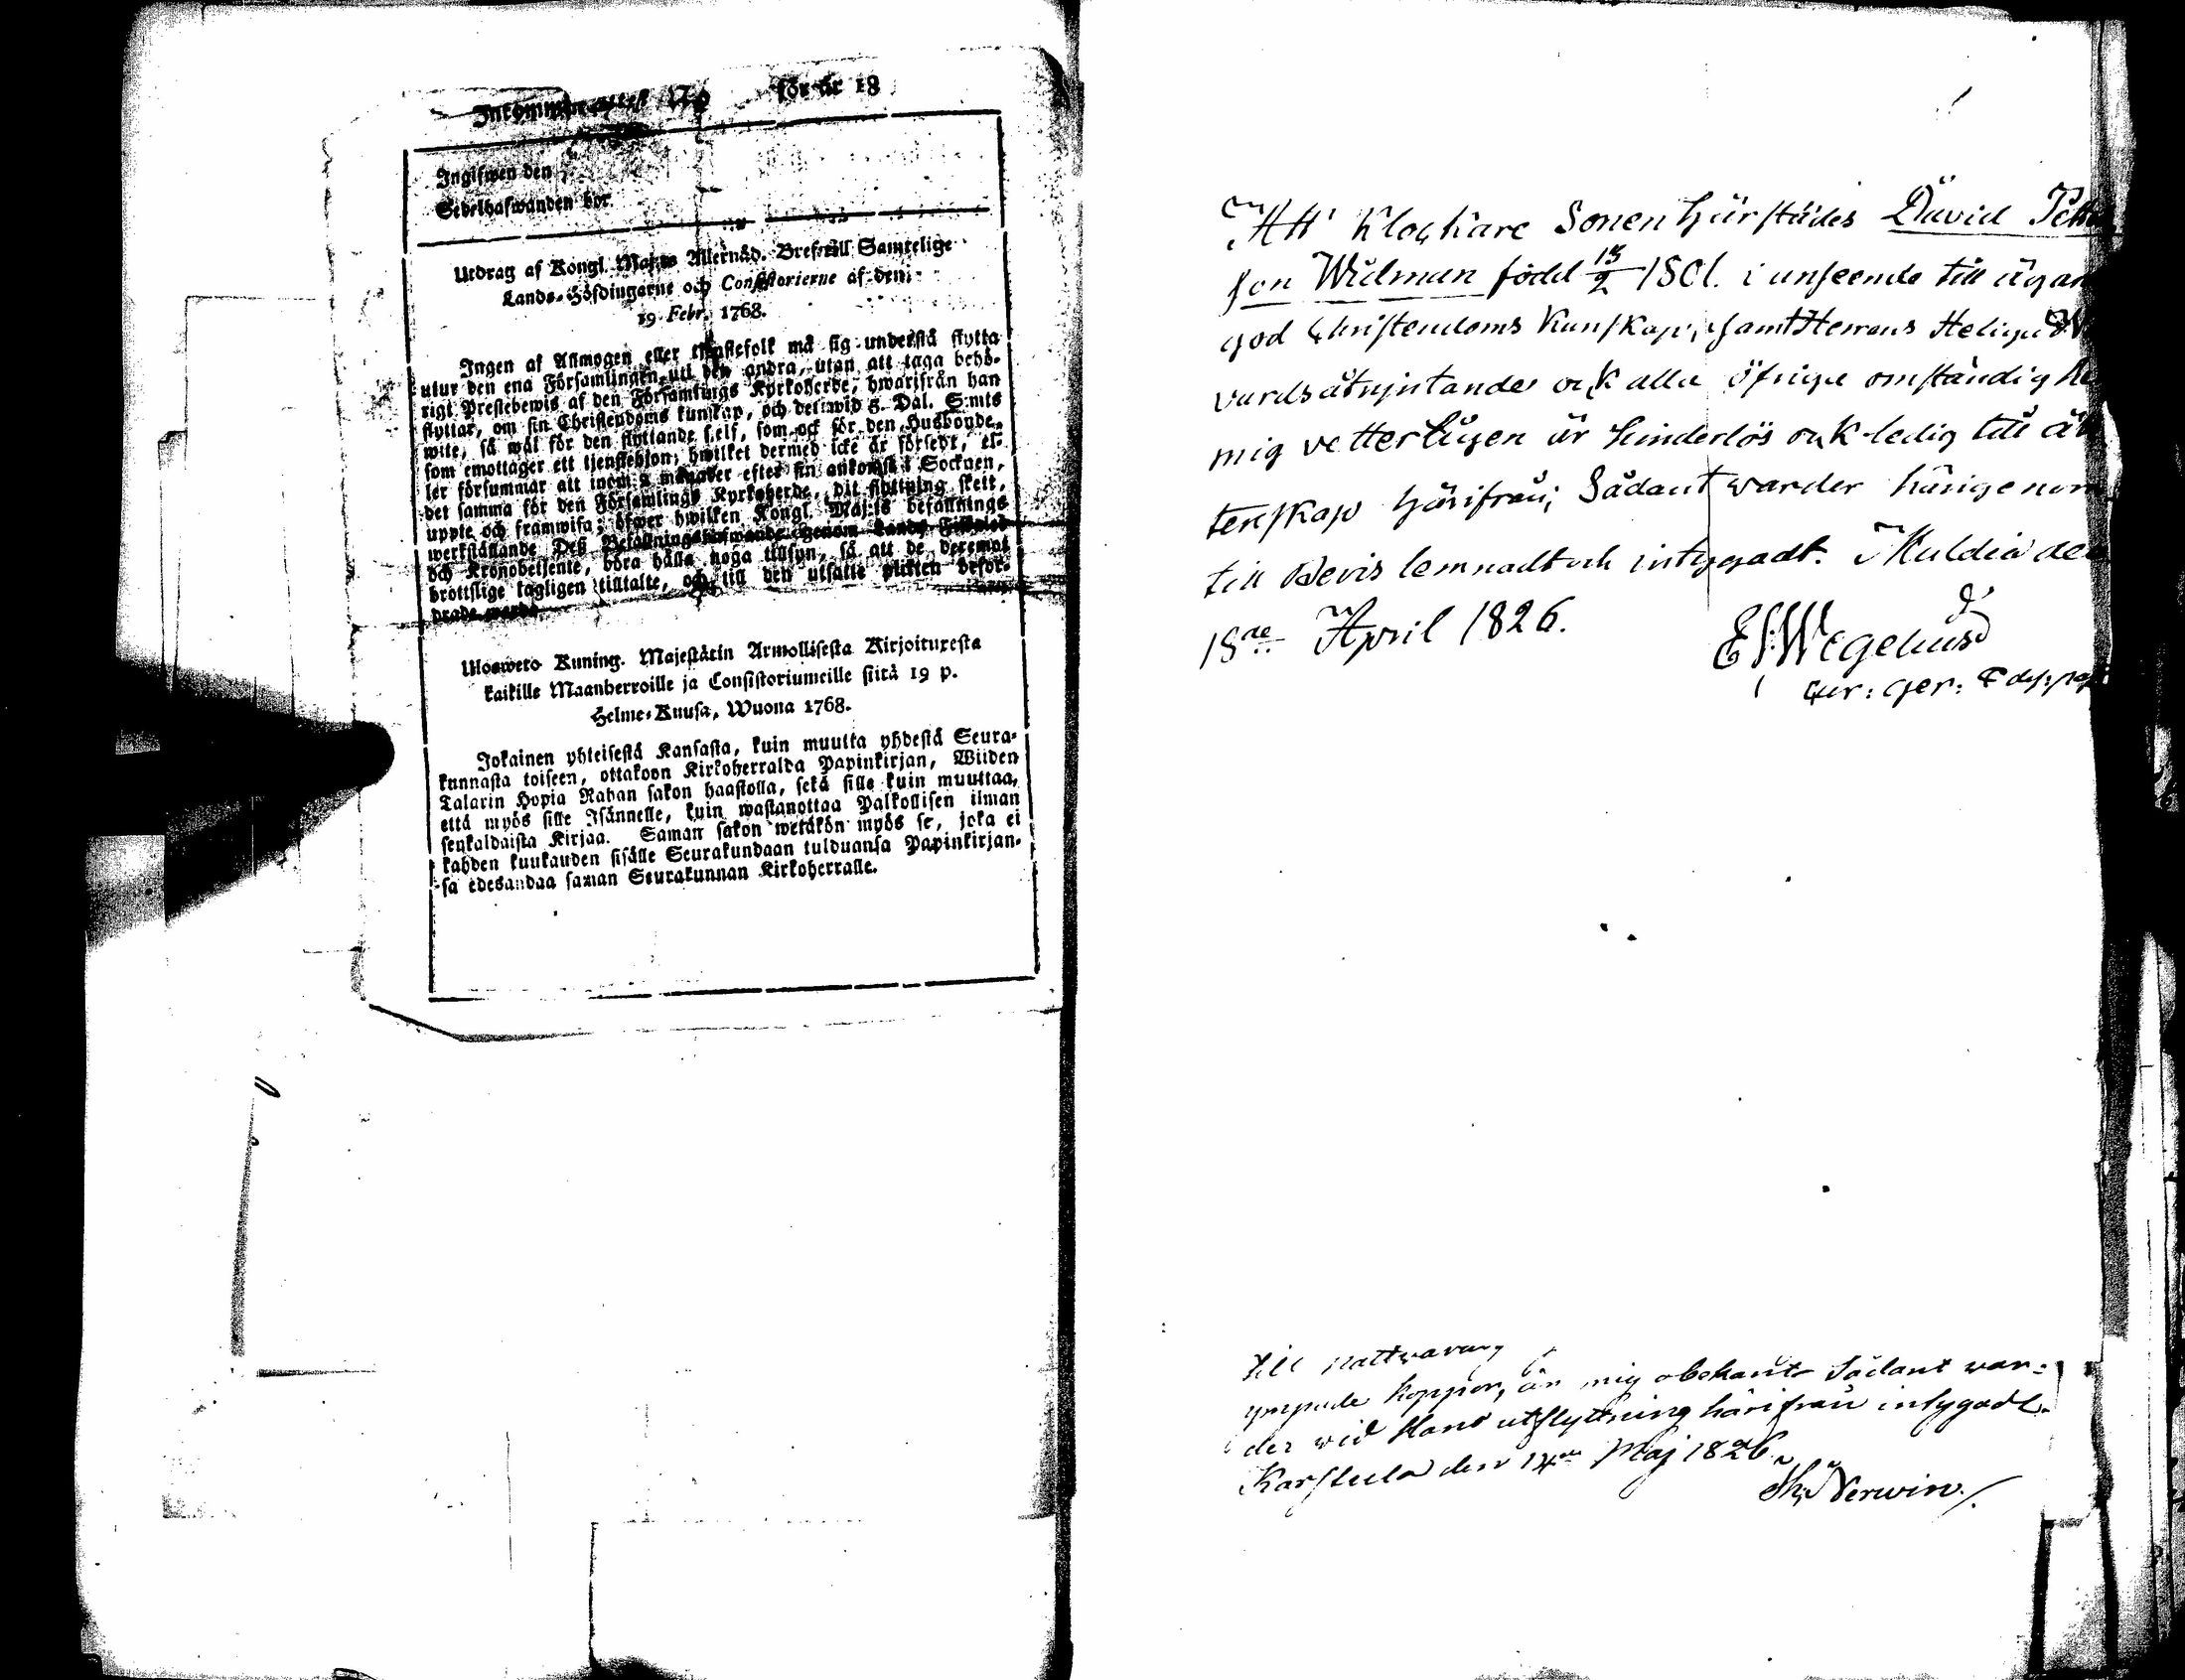 Inkommen attest No för år 18
Ingifwen den
Sedelhafwanden bor
Utdrag af Kongl. Maj:ts Allernåd. Bref till Samtelige
Lands-Höfdingarne och Consistorierne af den
19 Febr. 1768.
Ingen af Allmogen eller tjenstefolk må sig understå flytta
utur den ena Församlingen uti den andra, utan att taga behö-
rigt Prestebewis af den Församlings Kyrkoherde, hwarifrån han
flyttar, om sin Christendoms kunskap, och det wid 5. Dal. S:mts
wite, så wäl för den flyttande self, som ock för den Husbonde,
som emottager ett tjenstehjon, hwilket dermed icke är försedt, el-
ler försummar att inom 2 månader efter sin ankomst i Socknen,
det samma för den Församlings Kyrkoherde, dit flyttning skett,
uppte och framwisa; öfwer hwilken Kongl. Maj:ts befallnings
werkställande Deß Befallningshafwande genom Lands Fiskaler
och Kronobetjente, böra hålla noga tillsyn, så att de deremot
brottslige lagligen tilltalte, och till den utsatte plikten befor-
drade warda.
Ulosweto Kuning. Majestätin Armollisesta Kirjoituxesta
kaikille Maanherroille ja Consistoriumeille siitä 19 p.
Helme-Kuusa, Wuona 1768.
Jokainen yhteisestä Kansasta, kuin muutta yhdestä Seura-
kunnasta toiseen, ottakoon Kirkoherralda Papinkirjan, Wiiden
Talarin Hopia Rahan sakon haastolla, sekä sille kuin muuttaa,
että myös sille Isännelle, kuin wastanottaa Palkollisen ilman
senkaldaista Kirjaa. Saman sakon wetäkön myös se, joka ei
kahden kuukauden sisälle Seurakundaan tulduansa Papinkirjan-
sa edesandaa saman Seurakunnan Kirkoherralle.
Att Klockare Sonen härstädes David Pett
son Widman född 15/2 1801. i anseende till ägan
god Christendoms Kunskap, samt Herrans Heliga
vards åtnjutande och alla öfriga omständighe
mig vetterligen är hinderlös och ledig till äk
tenskap härifrån; Sådant warder härigenom
till Bevis lemnadt och intygadt. Kuldia den
18de April 1826.
E J Wegelius
till nattvarden
ympade koppor, är mig obekant Sådant war-
der wid Hans utflyttning härifrån intygadt.
Karstula den 14de Maj 1826
Nerwin.